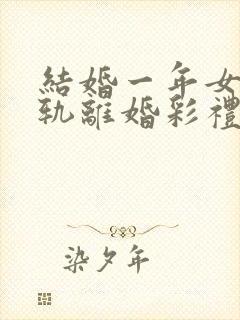 結婚一年女
軌離婚彩禮
染夕年